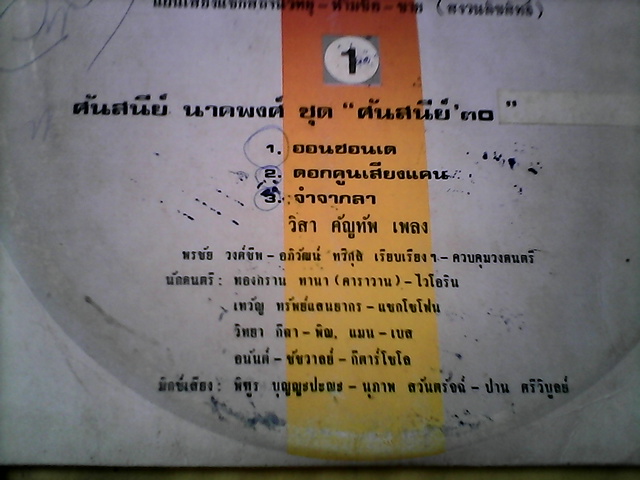 แผ่นเสียงแจกสถานีวิทยุ - ห้ามซื้อ - ขาย (สงวนลิขสิทธิ์)
1
ศันสนีย์ นาคพงศ์ ชุด "ศันสนีย์'๓๐"
1. ออนซอนเด
2. ดอกคูนเสียงแคน
3. จำจากลา
วิสา คัญทัพ เพลง
พรชัย วงศ์ชีพ - อภิวัฒน์ ทวิสุส เรียบเรียงฯ - ควบคุมวงดนตรี
นักดนตรี : ทองกราน ทานา (คาราวาน) - ไวโอริน
เทวัญ ทรัพย์แสนยากร - แซกโซโฟน
วิทยา กีตา - พิณ, แมน - เบส
อนันต์ - ชัชวาลย์ - กีตาร์โซโล
มิกซ์เสียง : พิฑูร บุญญะปะณะ - นุภาพ สวันตรัจฉ์ - ปาน ตรีวิบูลย์